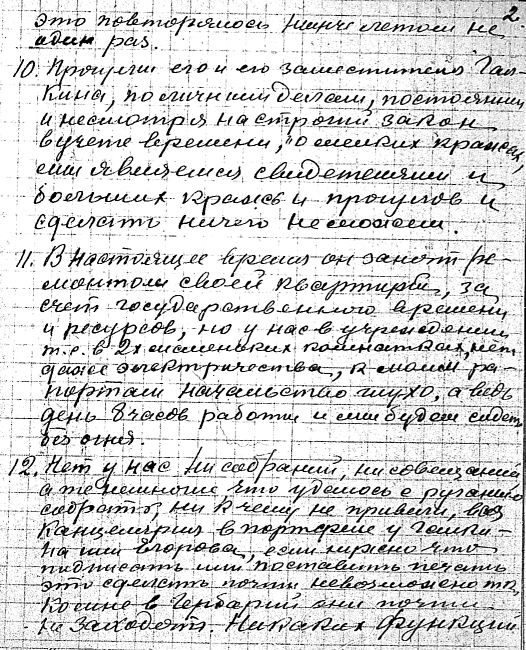 2
это повторялось нынче летом не
один раз.
10. Прогулы его и его заместителя Гал-
кина, по личным делам, постоянны
и несмотря на строгий закон
в учете времени, "о мелких кражах,
мы являемся свидетелями и
больших краж и прогулов и
сделать ничего не можем.
11. В настоящее время он занят ре-
монтом своей квартиры, за
счет государственного времени
и ресурсов, но у нас в учреждении
т.е. в 2х маленьких комнатках, нет
даже электричества, к моим ра-
портам начальство глухо, а ведь
день 8 часов работы и мы будем сидеть
без огня.
12. Нет у нас ни собраний, ни совещаний
а те немногие что удалось с руганью
собрать, ни к чему не привели, вся
канцелярия в портфеле у Галки-
на или Егорова, если нужно что
подписать или поставить печать
это сделать почти невозможно т.к.
в Гербарий они почти
не заходят. Никаких функций